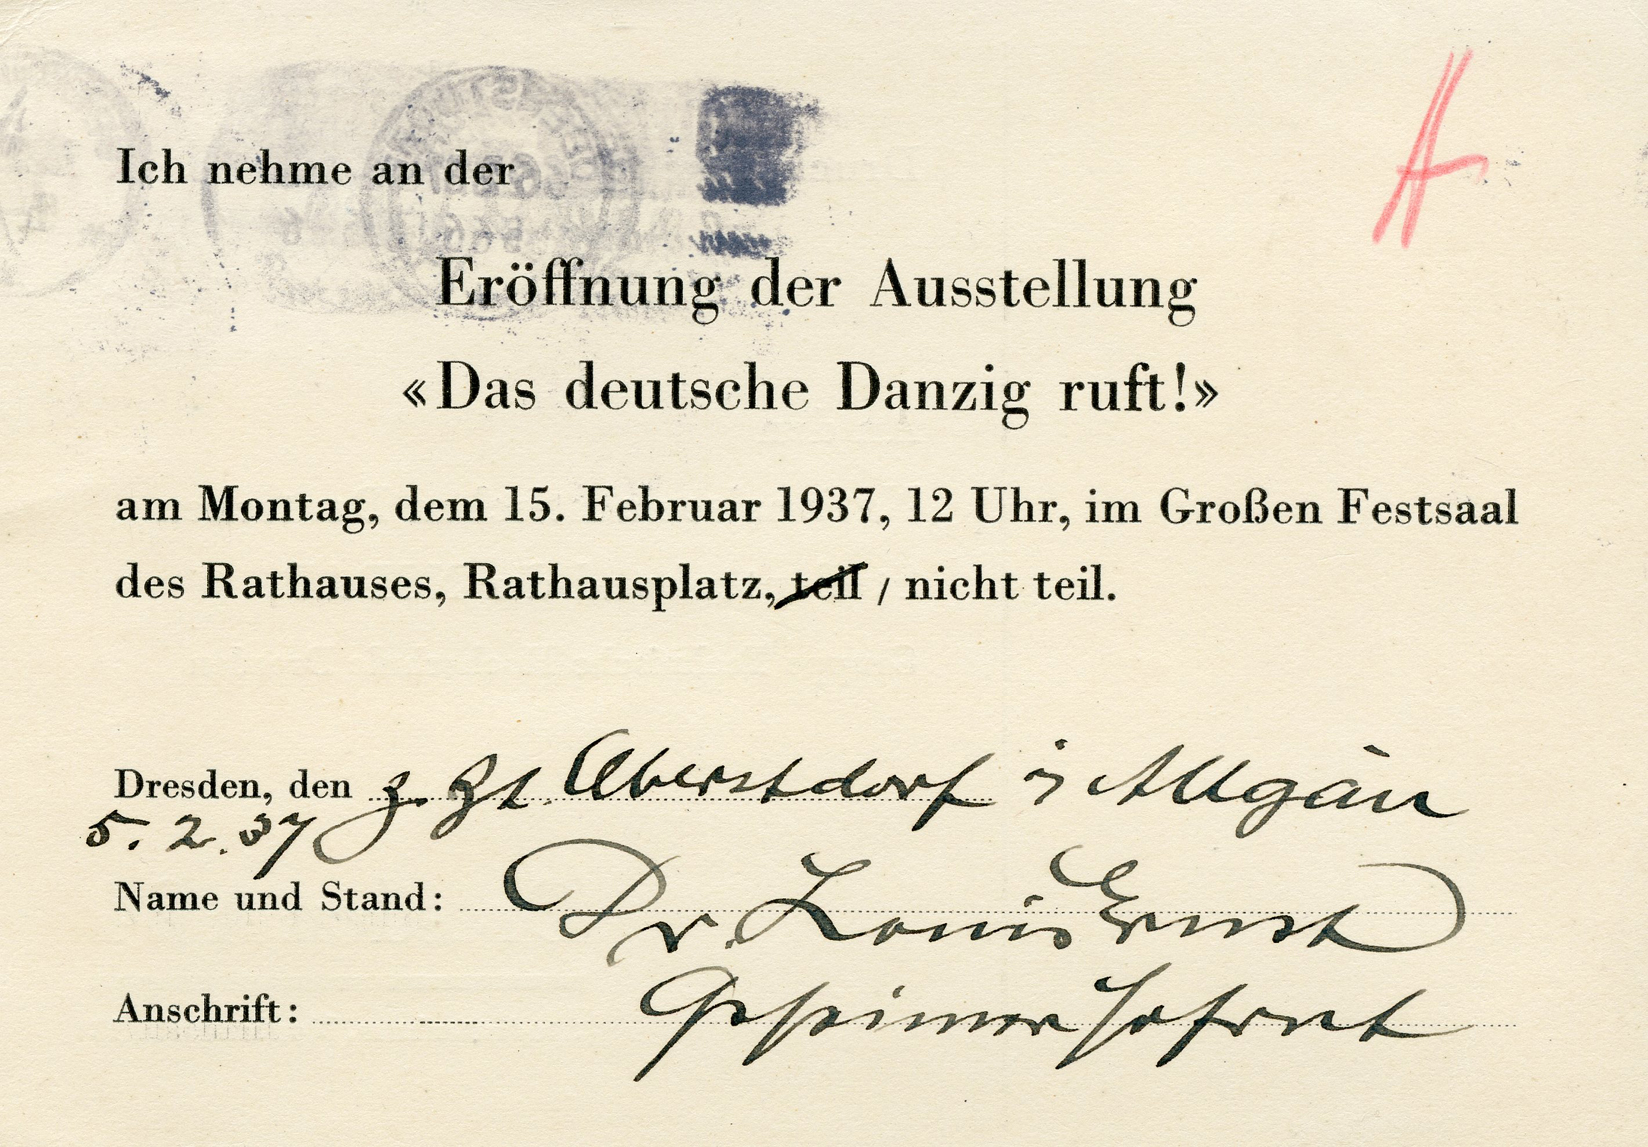 Ich nehme an der
Eröffnung der Ausstellung
«Das deutsche Danzig ruft!»
am Montag, dem 15. Februar 1937, 12 Uhr, im Großen Festsaal
des Rathauses, Rathausplatz, teil / nicht teil.
Dresden, den z. Zt. Oberstdorf i Allgäu
5. 2. 37
Name und Stand: Dr. Louis Ernst
Anschrift: Geheimer Hofrat